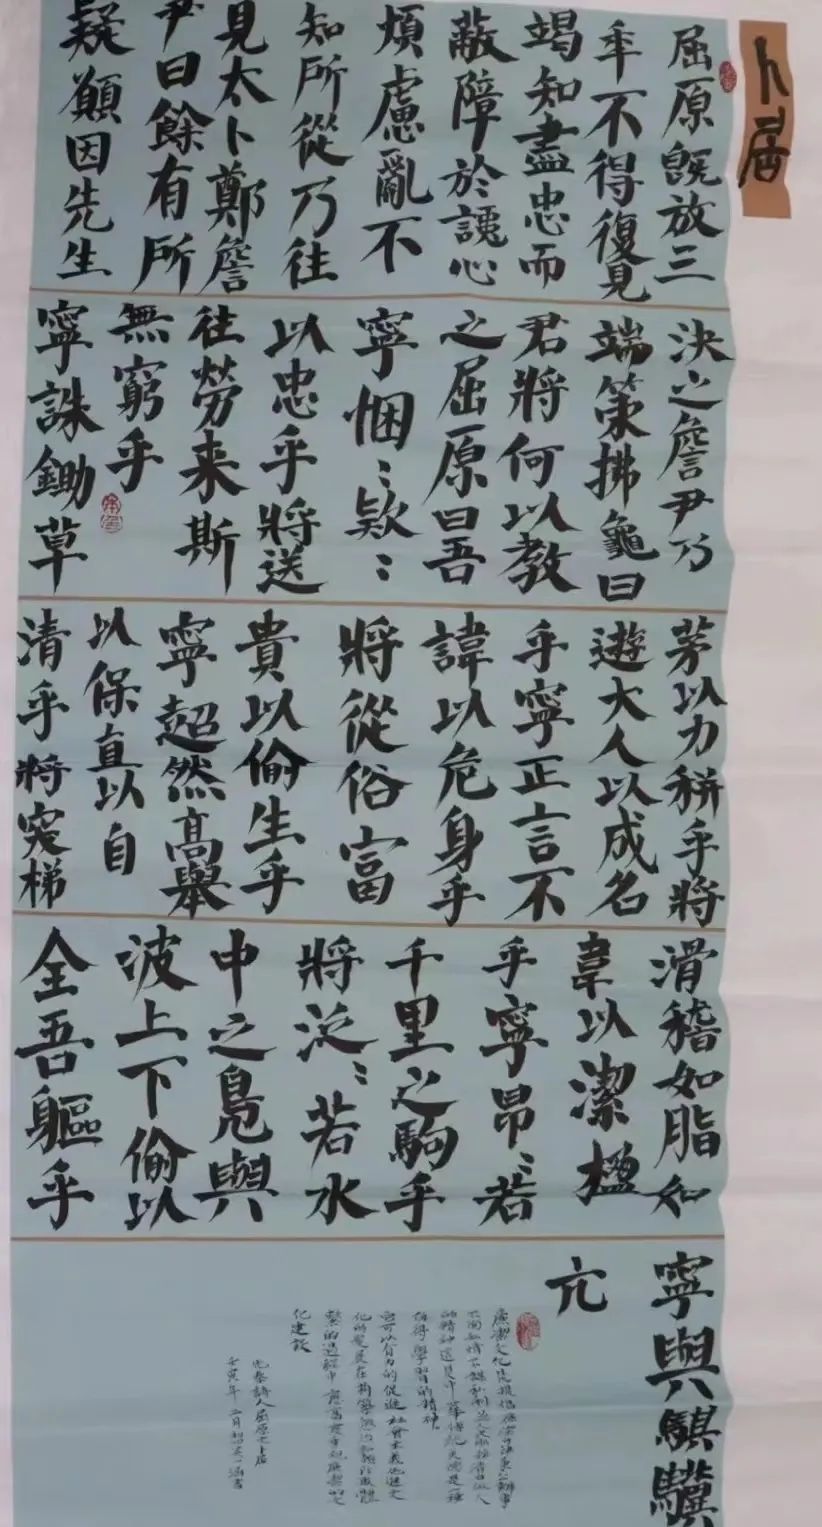 卜居
屈原既放三
年不得復見
竭知盡忠而
蔽障於讒心
煩慮亂不
知所從乃往
見太卜鄭詹
尹曰餘有所
疑願因先生
決之詹尹乃
端策拂龜曰
君將何以教
之屈原曰吾
寧悃〻款〻
以忠乎將送
往勞来斯
無窮乎
寧誅鋤草
茅以力耕乎將
遊大人以成名
乎寧正言不
諱以危身乎
將從俗富
貴以偷生乎
寧超然高舉
以保真以自
清乎將突梯
滑稽如脂如
韋以潔楹
乎寧昂〻若
千里之駒乎
將泛〻若水
中之鳧與
波上下偷以
全吾軀乎
寧與騏驥
亢
值得學習的精神
化建設
先秦詩人屈原之卜居